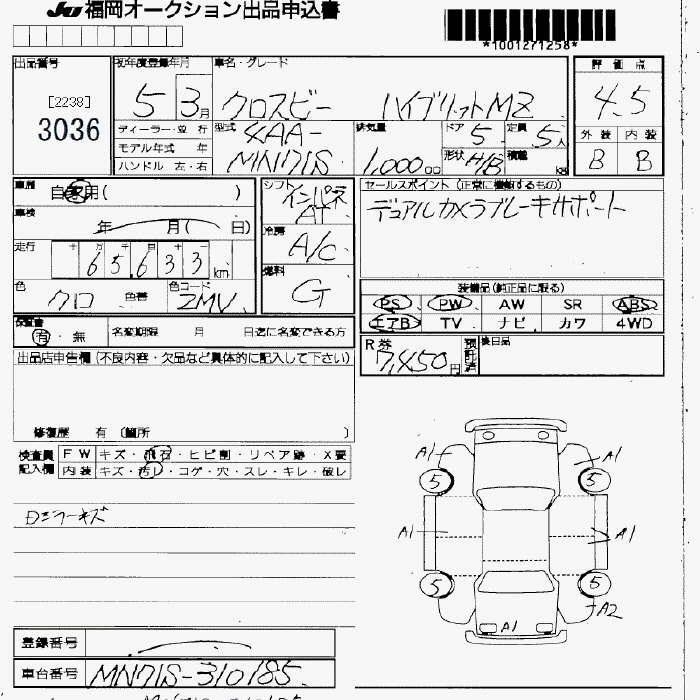 JU 福岡オークション出品申込書
*1001271258*
出品番号 [2238] 3036
初年度登録年月 5 3月
車名・グレード クロスビー ハイブリットMZ
評価点 4.5
外装 B 内装 B
ディーラー・並行
モデル年式 年
ハンドル 左・右
型式 4AA-MN71S
排気量 1,000cc
ドア 5
定員 5人
形状 H/B
積載 kg
車歴 自家用( )
車検 年 月( 日)
走行 十 万 千 百 十 65,633km
色 クロ 色替 色コード ZMV
シフト インパネAT
冷房 A/C
燃料 G
セールスポイント (正常に機能するもの)
デュアルカメラブレーキサポート
装備品(純正品に限る)
PS PW AW SR ABS
エアB TV ナビ カワ 4WD
保証書 有・無 名変期限 月 日迄に名変できる方
R券 7,450円 預託済
後日品
出品店申告欄(不良内容・欠品など具体的に記入して下さい)
修復歴 有 〔箇所 〕
検査員記入欄
FW キズ・飛石・ヒビ割・リペア跡・X要
内装 キズ・汚レ・コゲ・穴・スレ・キレ・破レ
Dミラーキズ
A1 A1
5 5
A1 A1
5 5
A1 A2
登録番号
車台番号 MN71S-310185